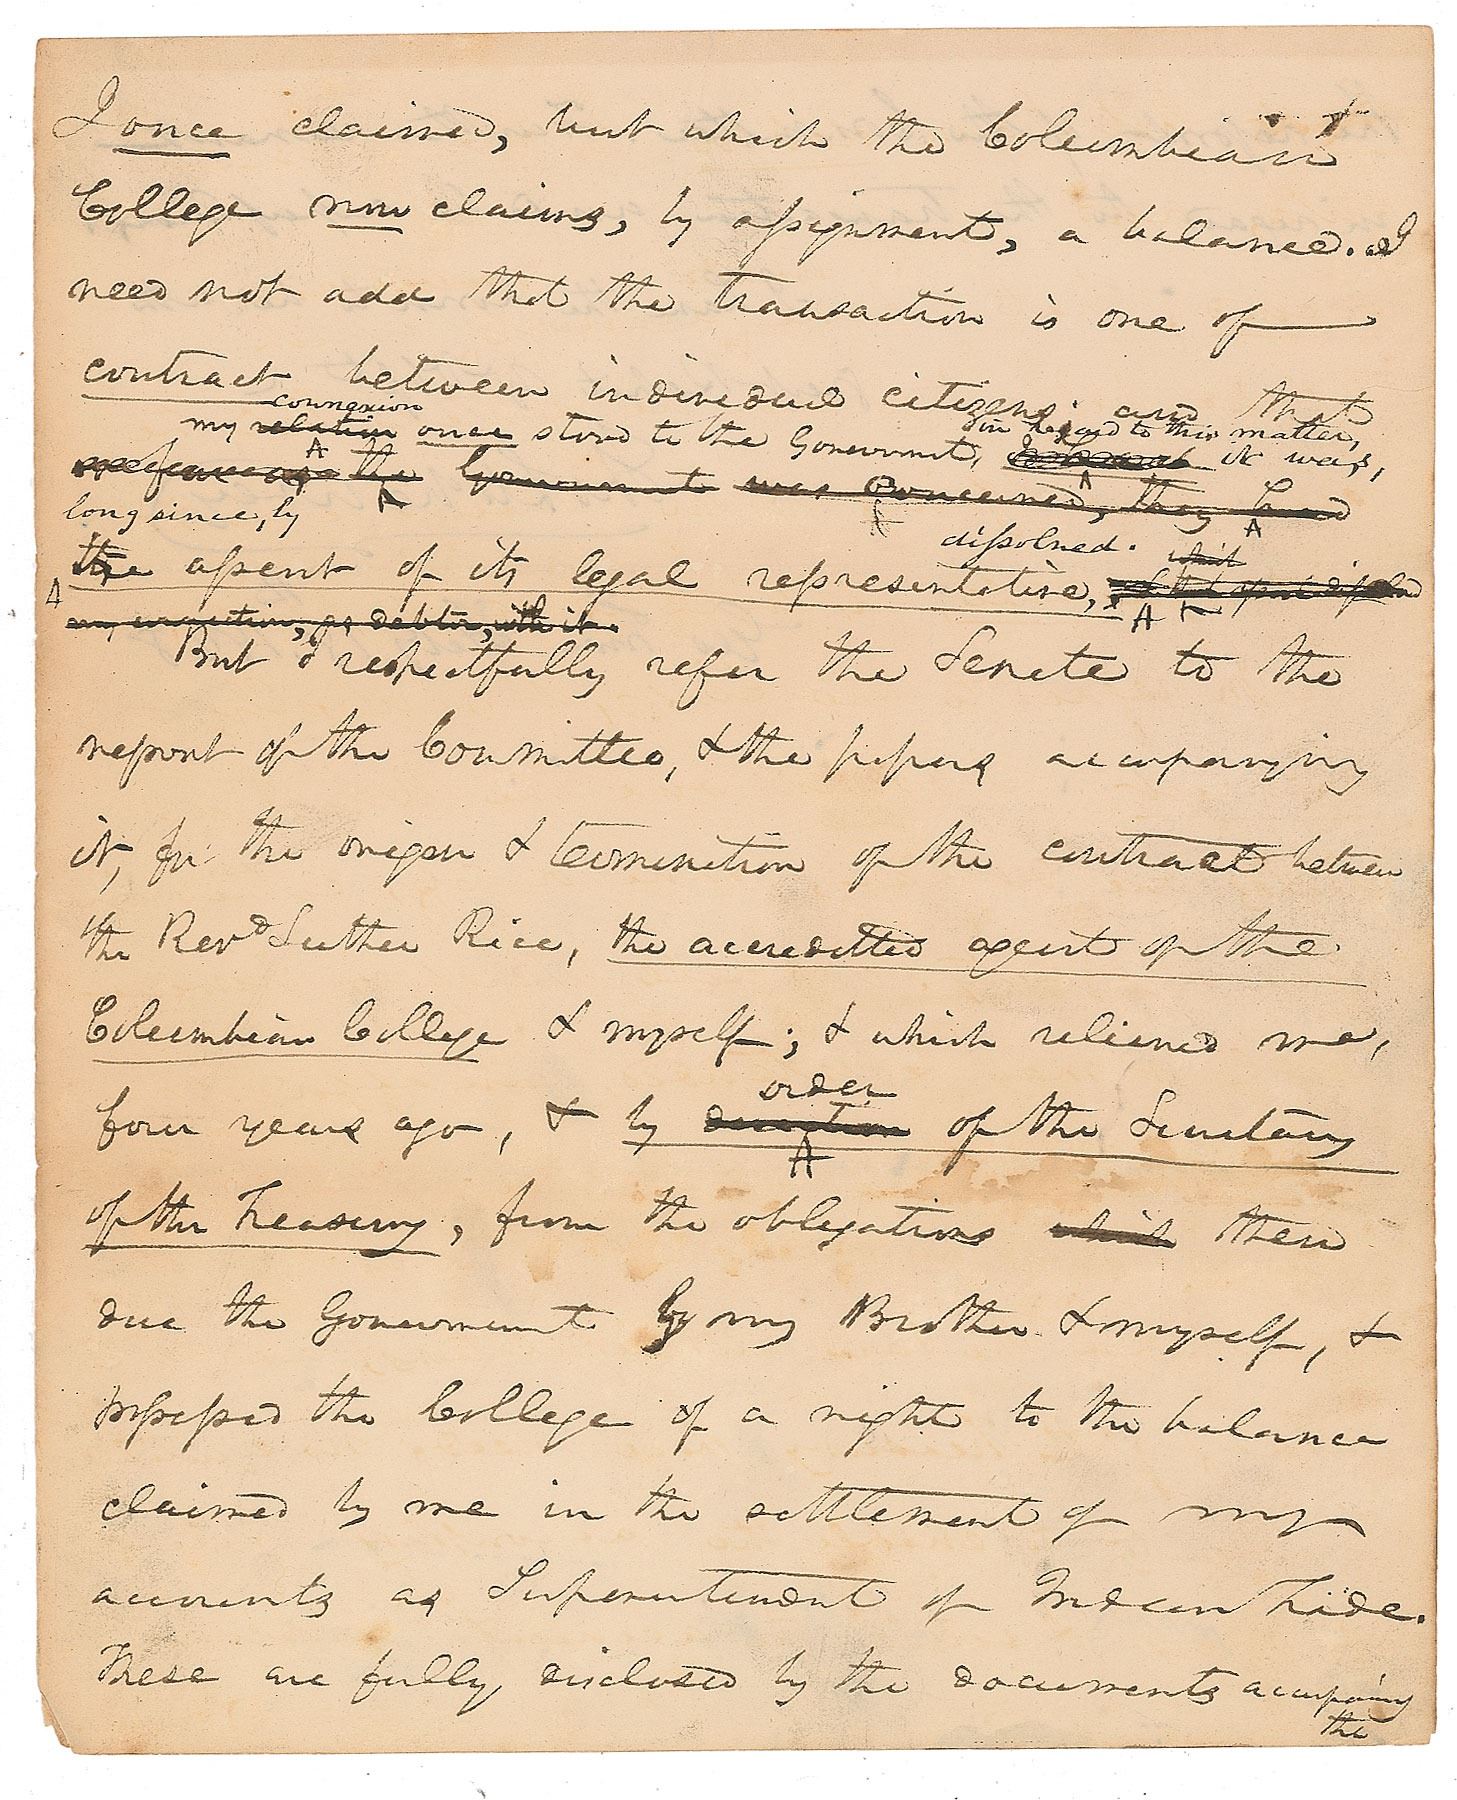 I once claimed, but which the Columbian
College now claims, by assignment, a balance. I
need not add that the transaction is one of
contract between individual citizens; and that
connexion
my relation once stood to the Government, in regard to this matter, it was,
so far as the Government was concerned, they had
long since, by
the assent of its legal representative, dissolved. which
my connection, as debtor, with it.
But I respectfully refer the Senate to the
report of the Committee, & the papers accompanying
it, for the origen & termination of the contract between
the Revd Luther Rice, the accredited agent of the
Columbian College & myself; & which relieved me,
four years ago, & by direction order of the Secretary
of the Treasury, from the obligations which then
due the Government by my Brother & myself, &
possessed the College of a right to the balance
claimed by me in the settlement of my
accounts as Superintendent of Indian Trade.
These are fully disclosed by the documents accompaning
the